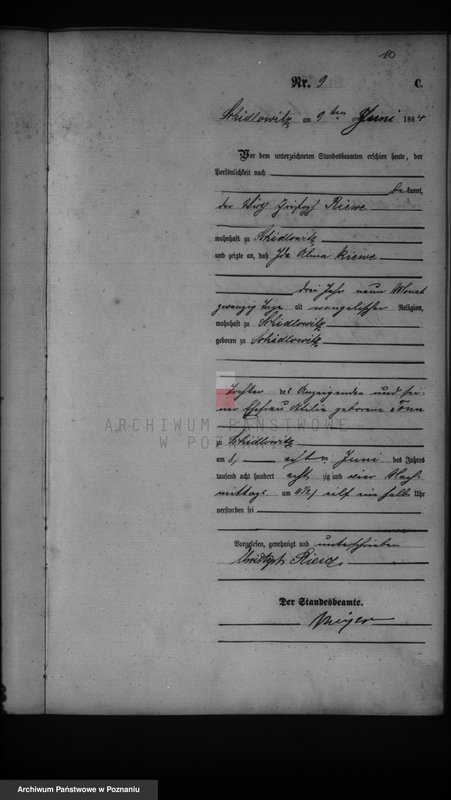 10
Nr. 9 C.
Skidlowitz am 9 ten Juni 1884
Vor dem unterzeichneten Standesbeamten erschien heute, der
Persönlichkeit nach
be kannt,
der Wirth Riewe
wohnhaft zu Skidlowitz
und zeigte an, daß Ida Alma Riewe
drei Jahr neun Monat
zwanzig Tage alt evangelischer Religion,
wohnhaft zu Skidlowitz
geboren zu Skidlowitz
Tochter des Anzeigenden und sei-
ner Ehefrau Ottilie geborene
zu Skidlowitz
am 8) acht en Juni des Jahres
tausend acht hundert acht zig und vier Nach-
mittags um elf ein halb Uhr
verstorben sei
Vorgelesen, genehmigt und unterschrieben
Der Standesbeamte.
Meyer
ARCHIWUM PAŃSTWOWE
W POZNANIU
Archiwum Państwowe w Poznaniu